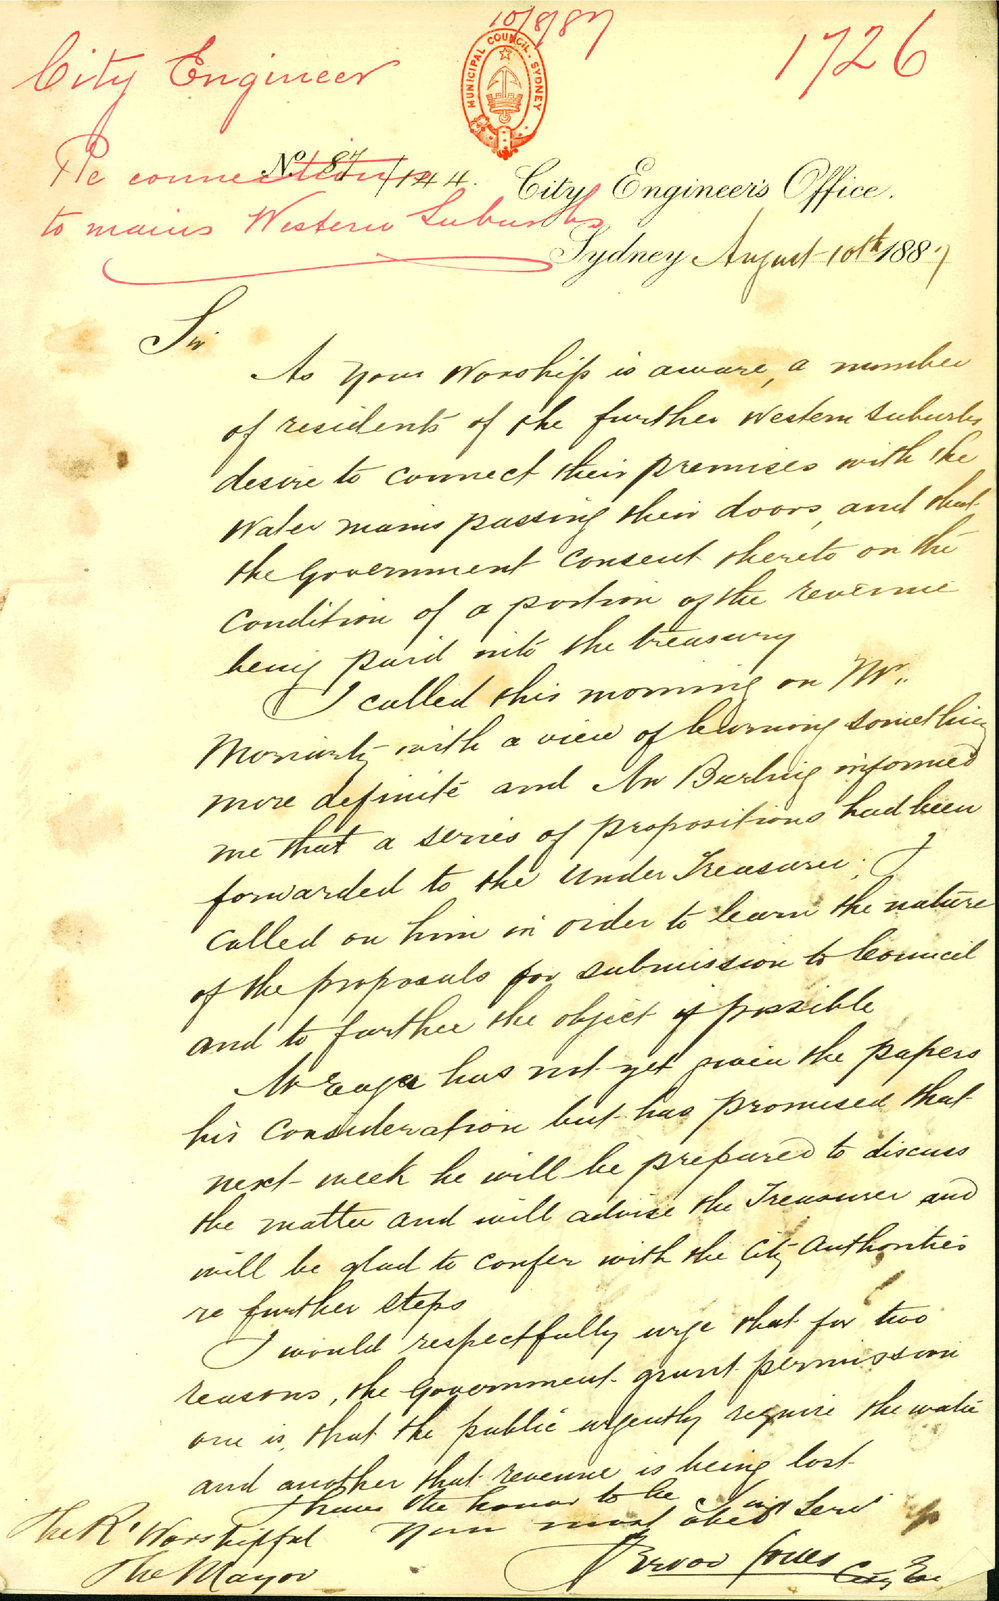 10/8/87
1726
City Engineer
MUNICIPAL COUNCIL. SYDNEY
Re connections
to mains Western Suburbs
No. 87/144. City Engineer's Office.
Sydney August 10th 1887
Sir
As Your Worship is aware, a number
of residents of the further Western Suburbs
desire to connect their premises with the
Water mains passing their doors, and that
the Government consent thereto on the
condition of a portion of the revenue
being paid into the treasury
I called this morning on Mr.
Moriarty with a view of learning something
more definite and Mr Darling informed
me that a series of propositions had been
forwarded to the Under Treasurer; I
called on him in order to learn the nature
of the proposals for submission to Council
and to further the object if possible
Mr Eagar has not yet given the papers
his consideration but has promised that
next week he will be prepared to discuss
the matter and will advise the Treasurer and
will be glad to confer with the City Authorities
re further steps
I would respectfully urge that for two
reasons, the Government grant permission
one is, that the public urgently require the water
and another that revenue is being lost
I have the honor to be Sir
Your most obedt Servt
The Rt Worshipful
The Mayor
Trevor Jones City En